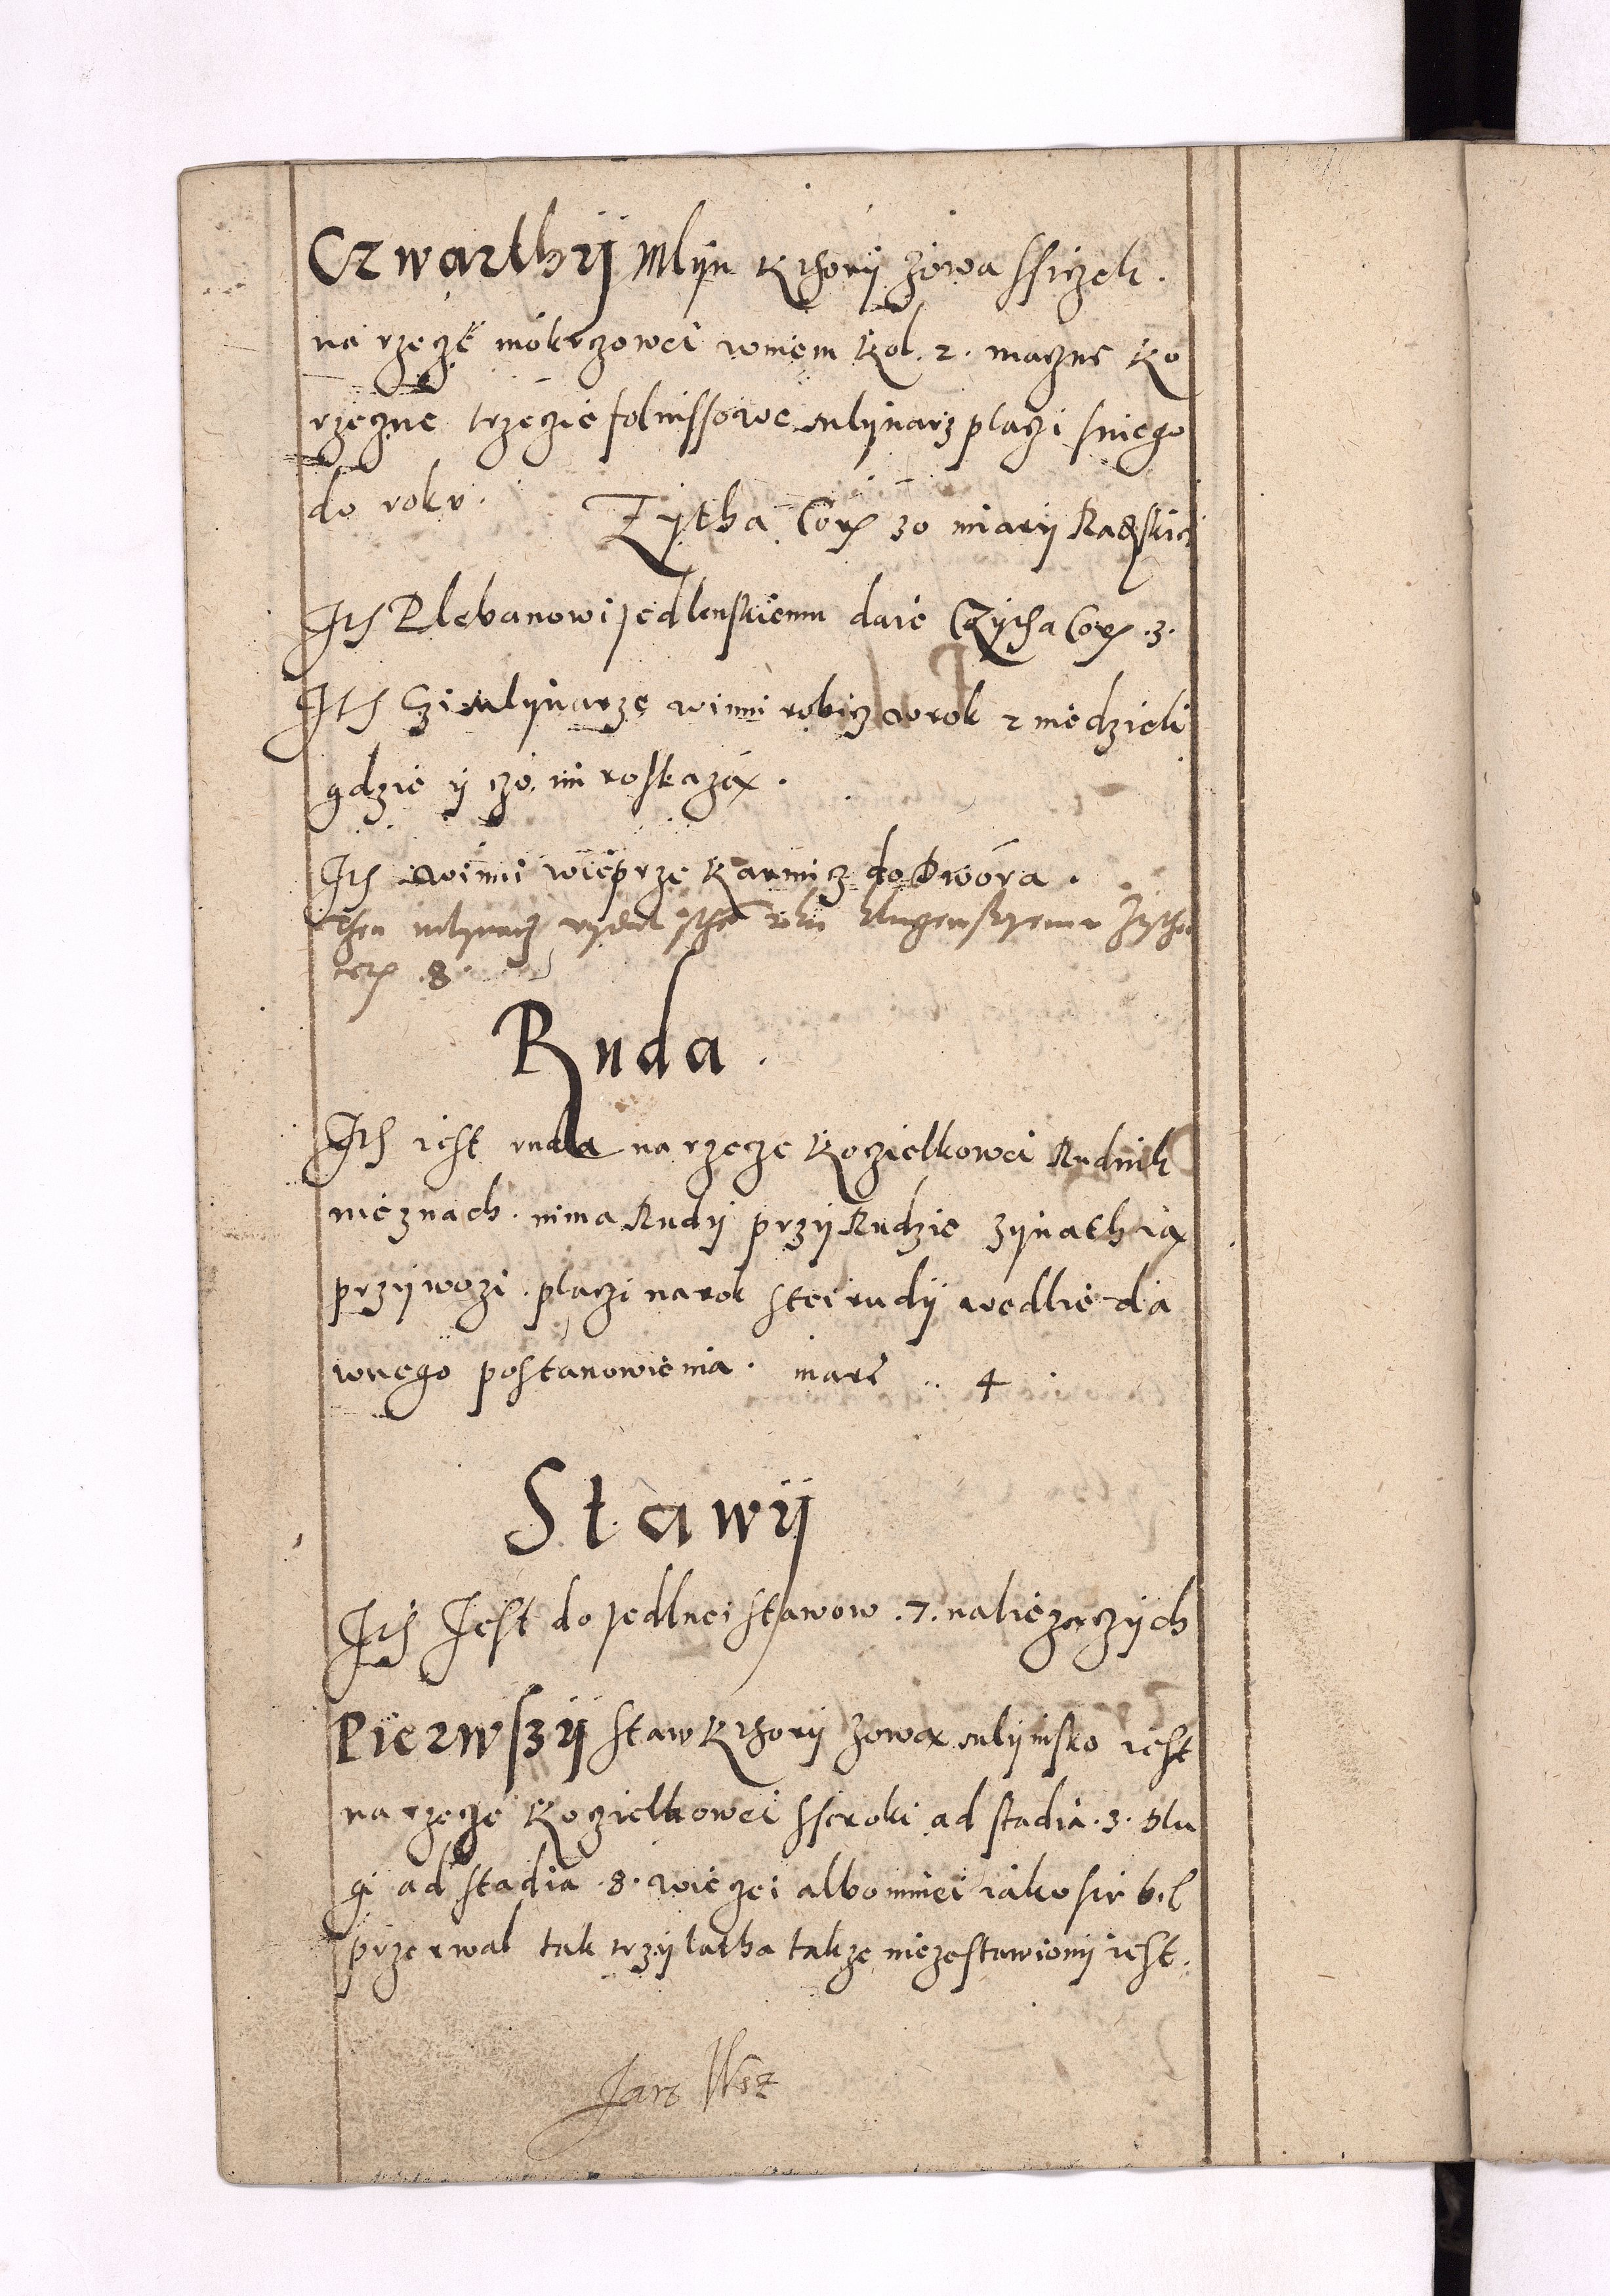 Czwarthÿ Mlÿn kthorÿ zowa Ssiczek.
na rzeczė mokrzowei wniem kol. 2. maczne ko
rzeczne trzeczie folussowe mlÿnarz placzi sniego
do roku. Zÿtha Cor 30 miarÿ Radskiei
Ith Plebanowi jedlenskiemu daie Czÿtha Cor .3.
Ith Czi mlÿnarze winni robicz wrok 2 niedzieli
gdzie ÿ czo im roskazą.
Ith winni wieprze karmicz do Dwora.
Then mlynarz
cor .8.
Ruda.
Ith iest ruda na rzecze kozielkowei Rudnik
nieznach. nima Rudÿ przÿ Rudzie zÿnath ią
przÿwozi. placzi narok stei rudÿ wedlie da
wnego postanowienia. marc .. 4
Stawÿ
Ith Jest do jedlnei stawow .7. naliezaczÿch
Pierwszÿ staw kthorÿ zową mlÿnsko iest
na rzecze kozielkowei Sseroki ad stadia .3. Dlu
gi ad stadia .8. wieczei albo mniei iako sie bel
przerwal tak trzÿ latha takze niezestawionÿ iest.